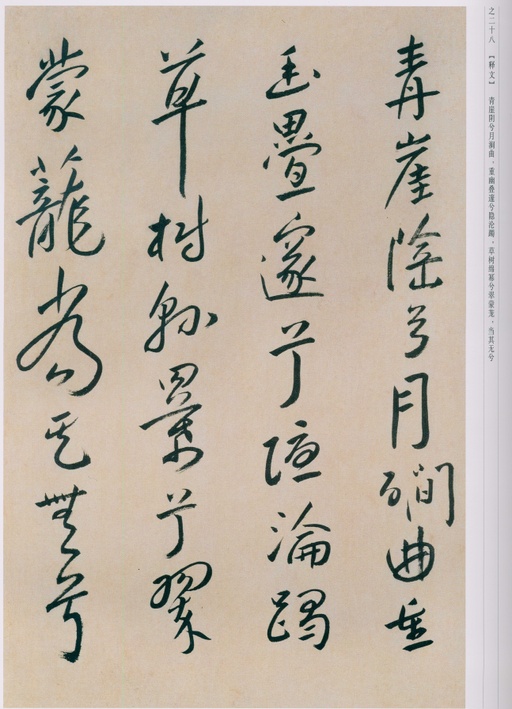 之二十八 【释文】 青崖阴兮月涧曲，重幽叠邃兮隐沦躅，草树绵幂兮翠蒙茏，当其无兮
青崖陰兮月磵曲重
幽疊邃兮隱淪躅
草樹緜羃兮翠
蒙蘢當其無兮